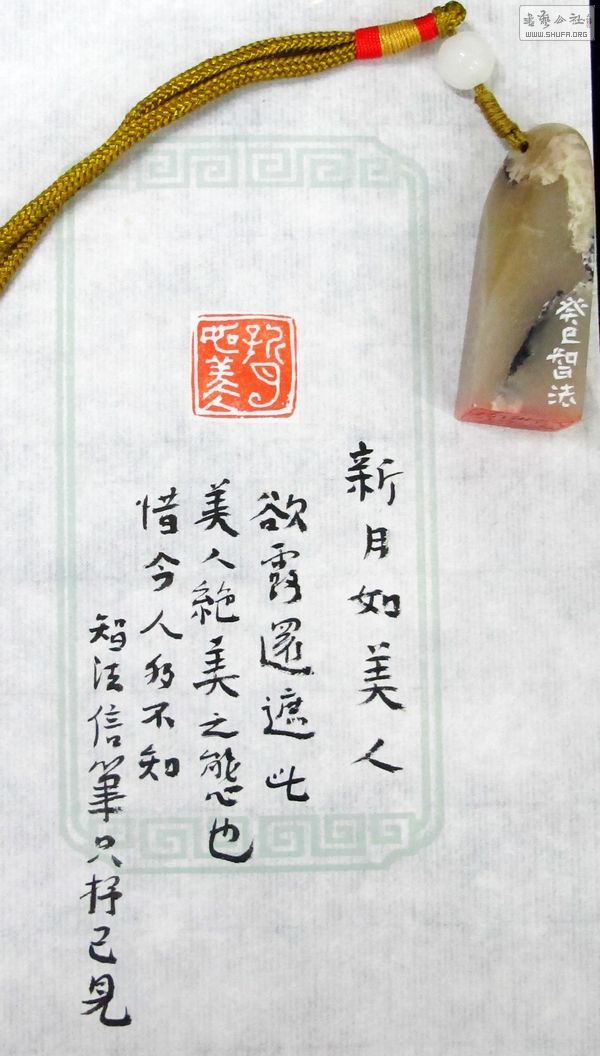 書藝公社
WWW.SHUFA.ORG
癸巳智法
新月如美人
新月如美人
欲露還遮此
美人絕美之態也
惜今人多不知
智法信筆只抒己見